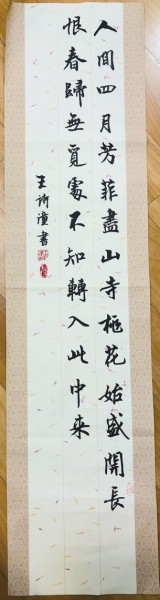 人間四月芳菲盡山寺桃花始盛開長
恨春歸無覓處不知轉入此中來
王詩潼書